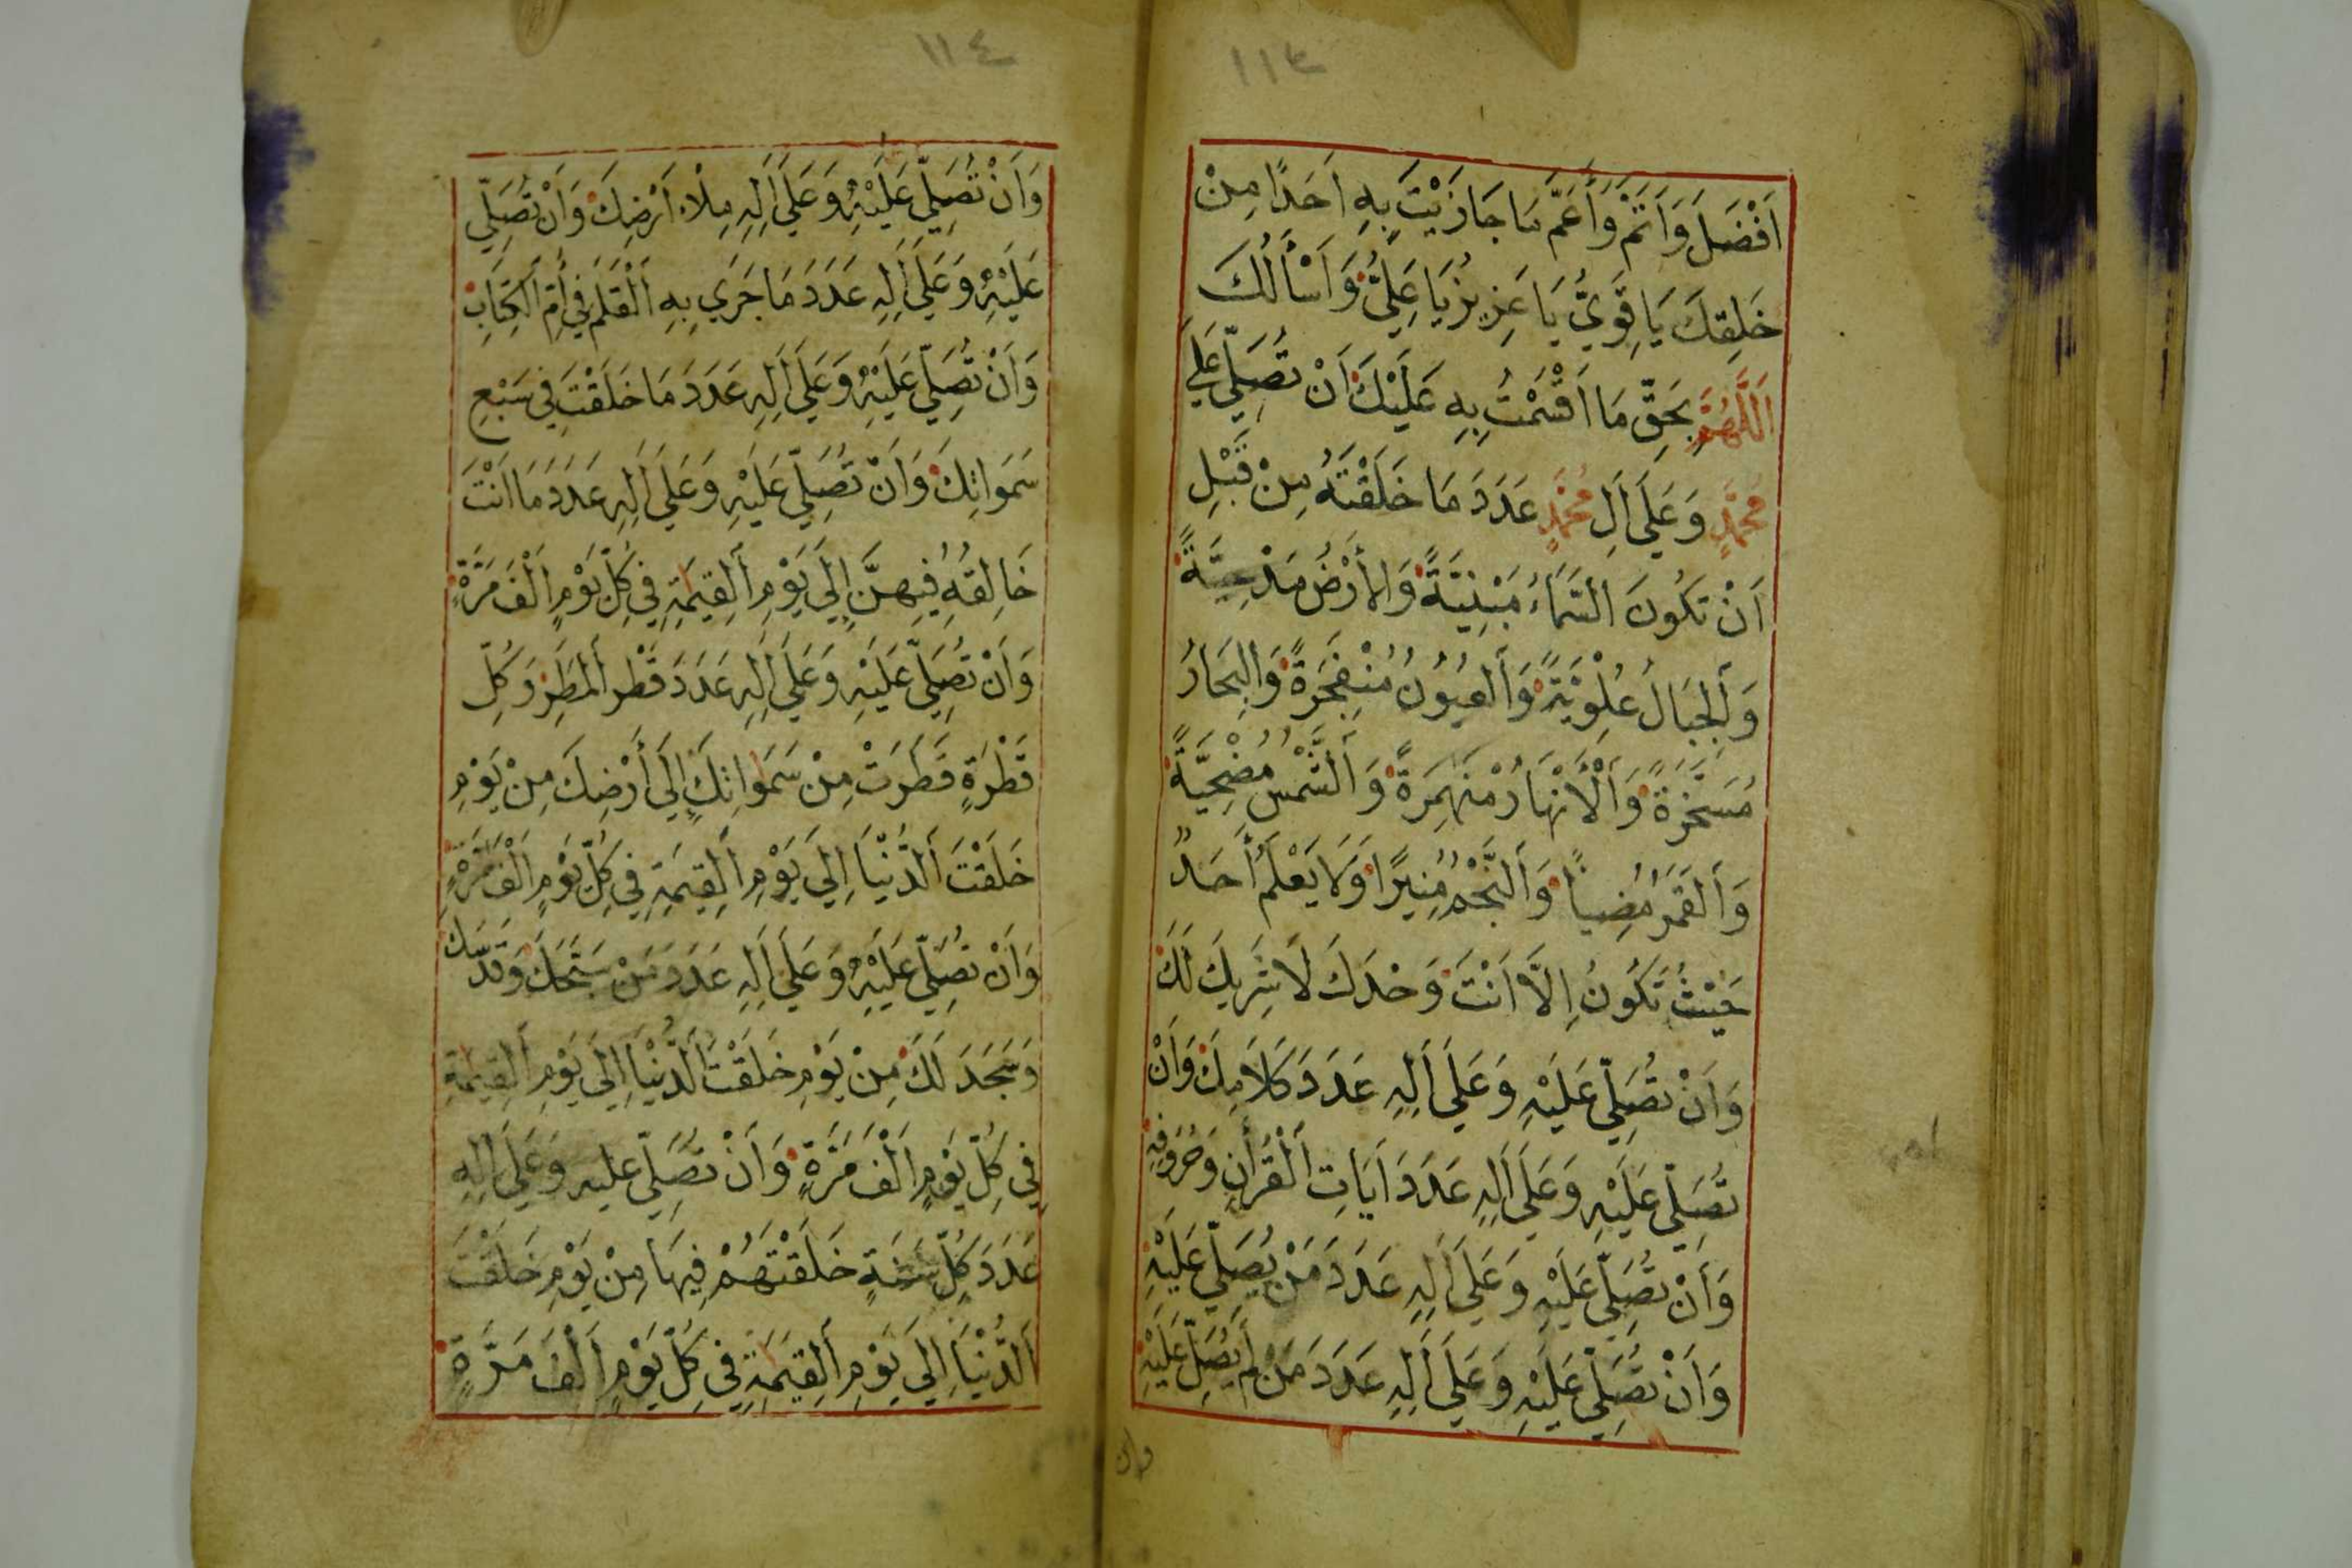 ١١٣
اَفْضَلَ وَاَتَمَّ وَأَعَمَّ مَا جَازَيْتَ بِهِ اَحَدًا مِنْ
خَلِقِكَ يَا قَوِيُّ يَا عَزِيزُ يَا عَلِيُّ وَاَسْأَلُكَ
اَللَّهُمَّ بِحَقِّ مَا اَقْسَمْتُ بِهِ عَلَيْكَ اَنْ تُصَلِّيَ عَلَى
مُحَمَّدٍ وَعَلَى اَلِ مُحَمَّدٍ عَدَدَ مَا خَلَقْتَهُ مِنْ قَبْلِ
اَنْ تَكُونَ السَّمَآءُ مَبْنِيَّةً وَالأَرْضُ مَدْحِيَّةً
وَأَلْجِبَالُ عُلْوِيَّةً وَأَلْعُيُونُ مُنْفَجِرَةً وَالْبِحَارُ
مُسَخَّرَةً وَاَلْأَنْهَارُ مُنْهَمِرَةً وَاَلشَّمْسُ مُضْحِيَّةً
وَأَلْقَمَرُ مُضِيأً وَأَلنَّجْمُ مُنِيرًا وَلَا يَعْلَمُ أَحَدٌ
حَيْثُ تَكُونُ اِلَّا اَنْتَ وَحْدَكَ لَا شَرِيكَ لَكَ
وَاَنْ تُصَلِّيَ عَلَيْهِ وَعَلَى اَلِهِ عَدَدَ كَلَامِكَ وَاَنْ
تُصَلِّيَ عَلَيْهِ وَعَلَى اَلِهِ عَدَدَ اَيَاتِ الْقُرْأَنِ وَحُرُوفِهِ
وَاَنْ تُصَلِّيَ عَلَيْهِ وَعَلَى اَلِهِ عَدَدَ مَنْ يُصَلِّي عَلَيْهِ
وَاَنْ تُصَلِّيَ عَلَيْهِ وَعَلَى اَلِهِ عَدَدَ مَنْ لَمْ يُصَلِّ عَلَيْهِ
وان
١١٤
وَاَنْ تُصَلِّيَ عَلَيْهِ وَعَلَى اَلِهِ مِلْأَ اَرْضِكَ وَاَنْ تُصَلِّيَ
عَلَيْهِ وَعَلَى اَلِهِ عَدَدَ مَا جَرَي بِهِ اَلْقَلَمُ فِي أُمِّ اَلْكِتَابِ
وَاَنْ تُصَلِّيَ عَلَيْهِ وَعَلَى اَلِهِ عَدَدَ مَا خَلَقْتَ فِي سَبْعِ
سَمَوَاتِكَ وَاَنْ تُصَلِّيَ عَلَيْهِ وَعَلَى اَلِهِ عَدَدَ مَا اَنْتَ
خَالِقُهُ فِيهِنَّ اِلَى يَوْمِ اَلْقِيَمَةِ فِي كُلِّ يَوْمٍ اَلْفَ مَرَّةٍ
وَاَنْ تُصَلِّيَ عَلَيْهِ وَعَلَى اَلِهِ عَدَدَ قَطْرِ اَلْمَطَرِ وَكُلِّ
قَطْرَةٍ قَطَرَتْ مِنْ سَمَوَاتِكَ اِلَى أَرْضِكَ مِنْ يَوْمِ
خَلَقْتَ اَلدُّنْيَا اِلَى يَوْمِ اَلْقِيَمَةِ فِي كُلِّ يَوْمٍ اَلْفَ مَرَّةٍ
وَاَنْ تُصَلِّيَ عَلَيْهِ وَعَلَى اَلِهِ عَدَدَ مَنْ سَبَّحَكَ وَقَدَّسَكَ
وَسَجَدَ لَكَ مِنْ يَوْمِ خَلَقْتَ اَلدُّنْيَا اِلَى يَوْمِ اَلْقِيَمَةِ
فِي كُلِّ يَوْمٍ اَلْفَ مَرَّةٍ وَاَنْ تُصَلِّيَ عَلَيْهِ وَعَلَى اَلِهِ
عَدَدَ كُلِّ سَنَةٍ خَلَقْتَهُمْ فِيهَا مِنْ يَوْمِ خَلَقْتَ
اَلدُّنْيَا اِلَى يَوْمِ اَلْقِيَمَةِ فِي كُلِّ يَوْمٍ اَلْفَ مَرَّةٍ